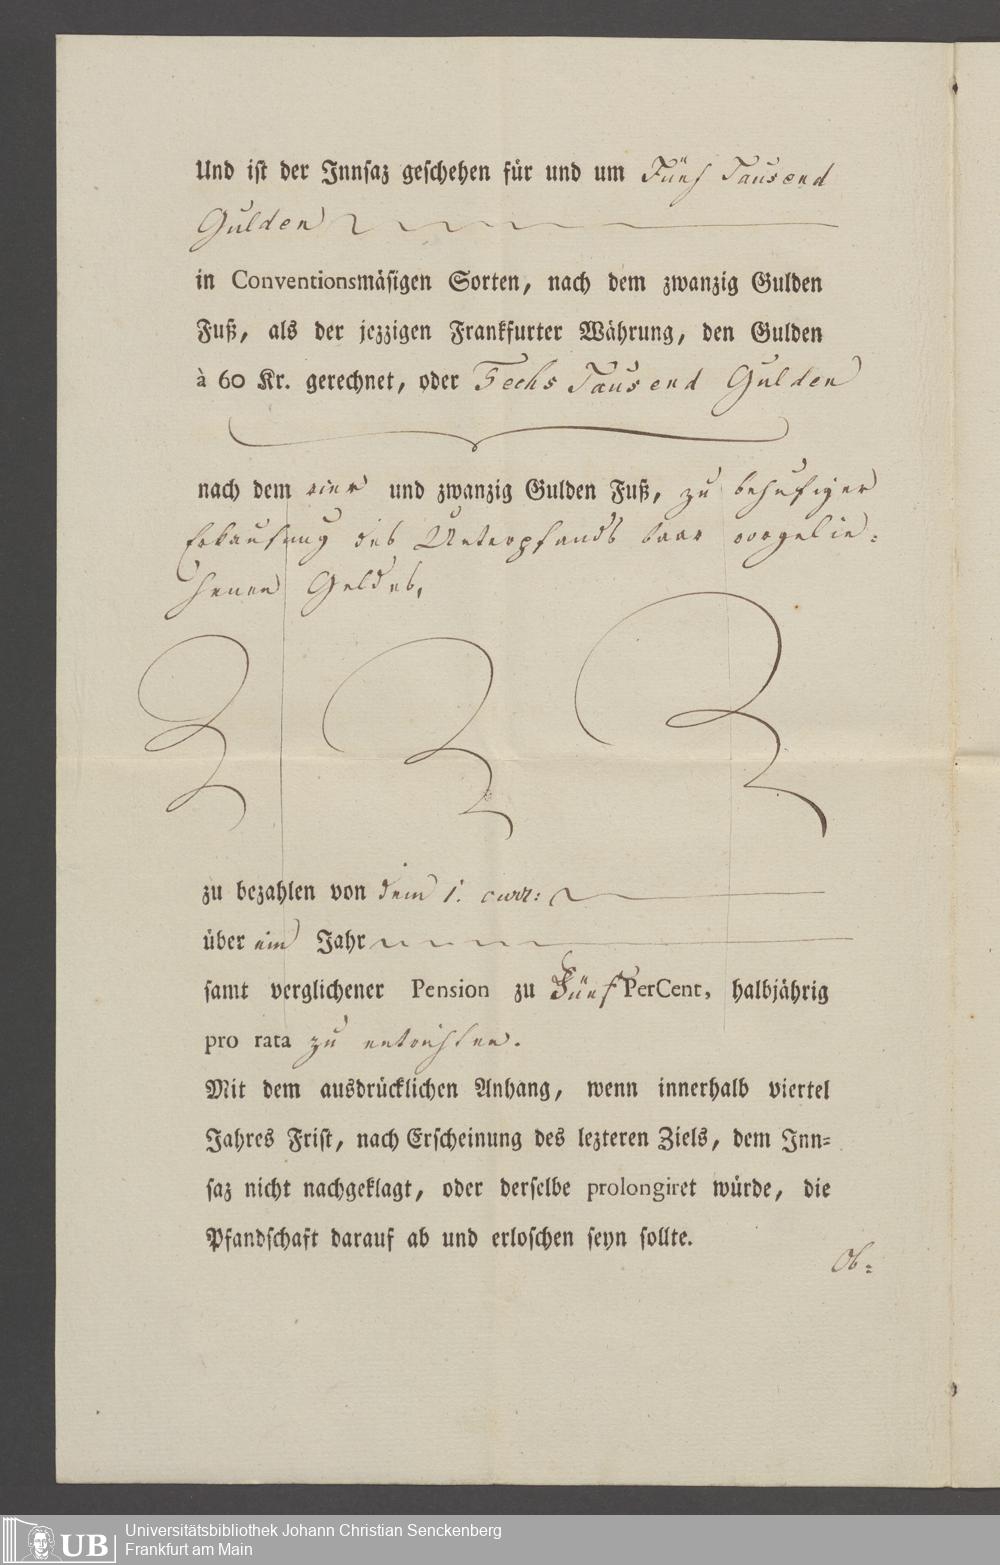 Und ist der Innsaz geschehen für und um Fünf Tausend
Gulden
in Conventionsmäsigen Sorten, nach dem zwanzig Gulden
Fuß, als der jezzigen Frankfurter Währung, den Gulden
à 60 Kr. gerechnet, oder Sechs Tausend Gulden
nach dem vier und zwanzig Gulden Fuß, zu behufiger
Erkaufung des Unterpfands baar vorgelie=
henen Geldes,
zu bezahlen von dem 1. curr:
über ein Jahr
samt verglichener Pension zu Fünf PerCent, halbjährig
pro rata zu entrichten.
Mit dem ausdrücklichen Anhang, wenn innerhalb viertel
Jahres Frist, nach Erscheinung des lezteren Ziels, dem Inn=
saz nicht nachgeklagt, oder derselbe prolongiret würde, die
Pfandschaft darauf ab und erloschen seyn sollte.
Ob=
UB
Universitätsbibliothek Johann Christian Senckenberg
Frankfurt am Main